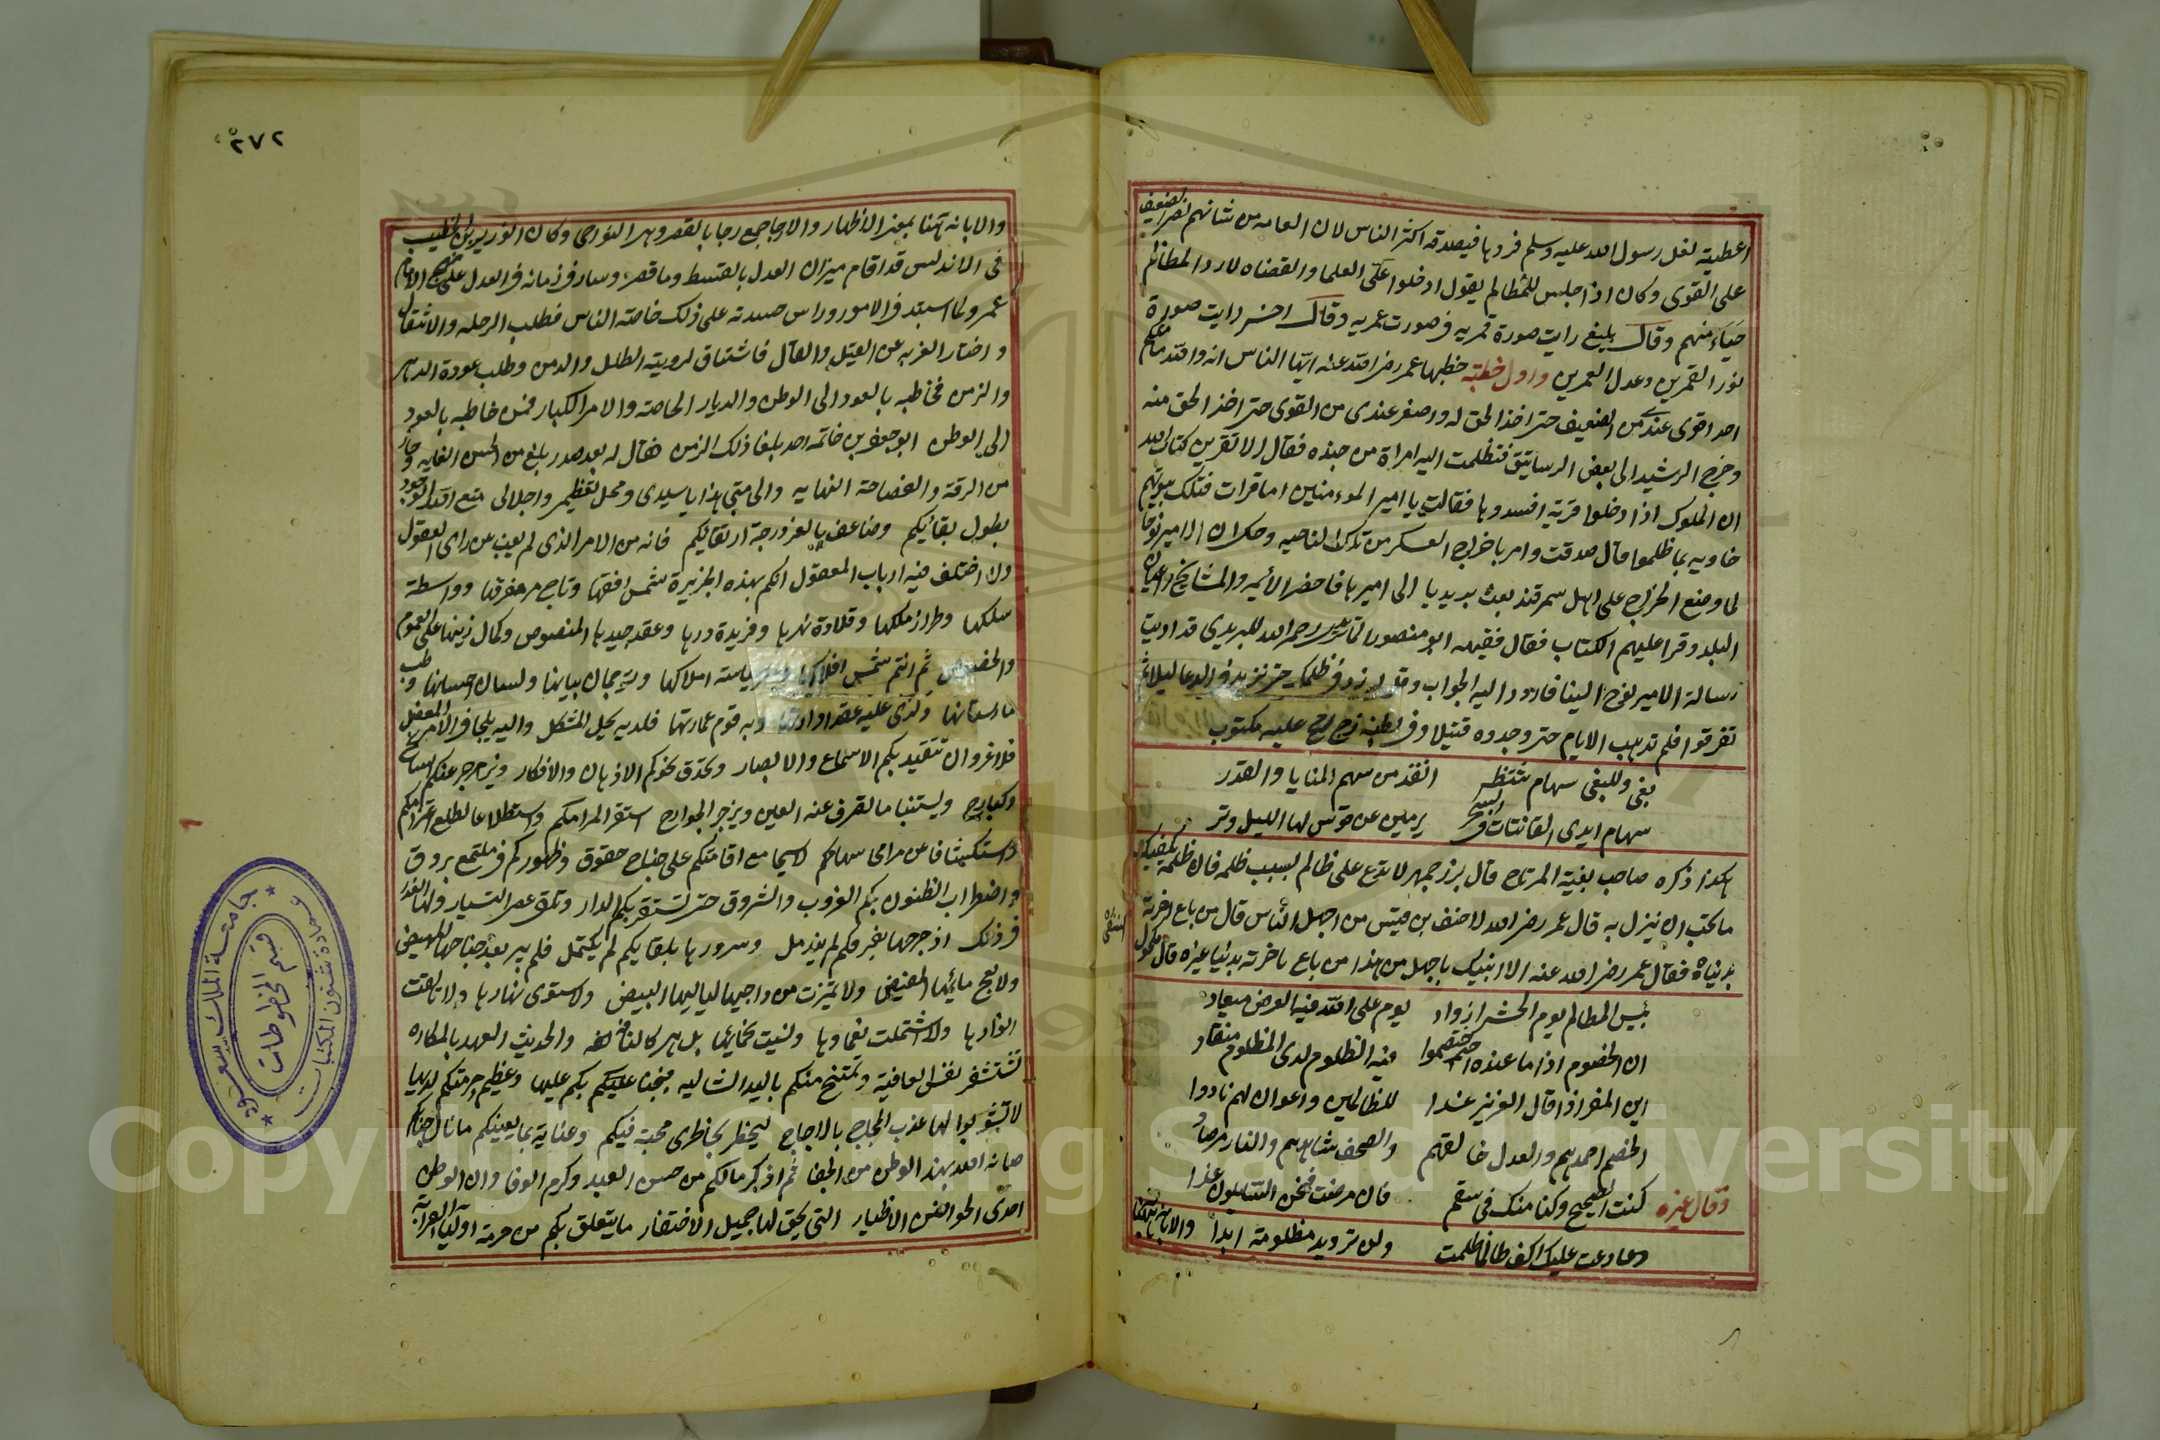 اعطيته لغل رسول الله عليه وسلم فردها فيصدقه اكثر الناس لان العامه من شانهم نصر الضعيف
على القوى وكان اذا جلس للمظالم يقول ادخلوا على العلما والقضاه لارد المظالم
حياء منهم وقال بليغ رايت صورة قمريه فى صورت عمريه وقال اخر رايت صورة
نور القمرين وعدل العمرين واول خطبة خطبها عمر رضى الله عنه ايها الناس انه والله ما فيكم
احد اقوى عندى من الضعيف حتى اخذ الحق له واضعف عندى من القوى حتى اخذ الحق منه
وخرج الرشيد الى بعض الرساتيق فتظلمت اليه امراة من جنده فقال الا تقرين كتاب الله
ان الملوك اذا دخلوا قرية افسدوها فقالت يا امير المومنين اما قرات فتلك بيوتهم
خاويه بما ظلموا قال صدقت وامر باخراج العسكر من تلك الناحيه وحكى ان الامير نوحا
لما وضع الخراج على اهل سمرقند بعث بريديا الى اميرها فاحضر الائمه والمشايخ واعيان
البلد وقرا عليهم الكتاب فقال فقيهه ابو منصور الماتريدى رحمه الله للبريدى قد اديت
رسالة الامير نوح الينا فاردد اليه الجواب وقل له زد فى ظلمك حتى نزيد فى الدعا ليلا ثم
تفرقوا فلم تذهب الايام حتى وجدوه قتيلا وفى بطنه زج رمح عليه مكتوب
بغى وللبغى سهام تنتظر انفذ من سهم المنايا والقدر
سهام ايدى القانتات فى السحر يرمين عن قوس لها الليل وتر
هكذا ذكره صاحب بغية المرتاح قال بزرجمهر لا تدع على ظالم بسبب ظلمه فان ظلمه يكفيك
ما تحب ان ينزل به قال عمر رضى الله لاحنف بن قيس من اجهل الناس قال من باع اخرته
بدنياه فقال عمر رضى الله عنه الا انبيك باجهل من هذا من باع اخرته بدنيا غيره قال مكحول
بئس المظالم يوم الحشر ازواد يوم على الله فيه العرض ميعاد
ان الخصوم اذا ما عنده اختصموا فيه الظلوم لدى المظلوم منقاد
اين المفر اذا قال العزيز غدا للظالمين واعوان لهم نادوا
الخصم احمدهم والعدل خالقهم والصحف شاهدهم والنار مرصاد
وقال غيره كنت الصحيح وكنا منك فى سقم فان مرضت فنحن السالمون غدا
دعا دعت عليك اكف طالما ظلمت ولن ترد يد مظلومة ابدا
٢٧٢
والابانه تهنا بمعنى الاظهار والارجا جمع رجا بالقصر وهى النواحى وكان الوزير بن الخطيب
فى الاندلس قد اقام ميزان العدل بالقسط وما قصر وسار فى زمانه فى العدل على نهج الامام
عمر ولما استبد فى الامور وراس حسدته على ذلك خاصة الناس فطلب الرحله والانتقال
واختار الغربه عن القيل والقال فاشتاق لروية الطلل والدمن وطلب عودة الدهر
والزمن فخاطبه بالعود الى الوطن والديار الخاصه والامرا الكبار فممن خاطبه بالعود
الى الوطن ابو جعفر بن خاتمه احد بلغا ذلك الزمن فقال له بعد صدر بلغ من الحسن الغايه وحاز
من الرقة والفصاحة النهايه والى متى هذا يا سيدى ومحل تعظيمى واجلالى متع الله الوجود
بطول بقائكم وضاعف بالعز درجة ارتقائكم فانه من الامر الذى لم يغب عن راى العقول
ولا اختلف فيه ارباب المعقول انكم بهذه الجزيرة شمس افقها وتاج مفرقها وواسطة
سلكها وطراز ملكها وقلادة نحرها وفريدة درها وعقد جيدها المنصوص وكمال زينها على العموم
والخصوص ثم انتم شمس افلاكها وسر سياسة املاكها وترجمان بيانها ولسان احسانها وطبيب
مارستانها والذى عليه عقد ادارتها وبه قوم عمارتها فلديه يحل المشكل واليه يلجا فى الامر المعضل
فلا غرو ان تتقيد بكم الاسماع والابصار وتحدق نحوكم الاذهان والافكار ويزجر عنكم السانح
والبارح ويستنبا ما تطرف عنه العين ويزجر الجوارح استقرا لمرامكم واستطلاعا لطلع اعتزامكم
واستكشافا عن مرامى سهامكم لاسيما مع اقامتكم على جناح خفوق وظهوركم فى ملتمع بروق
واضطراب الظنون بكم الغروب والشروق حتى تستقر بكم الدار وتلقى عصا التسيار ولها العذر
فى ذلك اذ جرحها بفراقكم لم يندمل وسرورها بلقايكم لم يكتمل فلم يبر بعد جناحها المهيض
ولا جم مائها المغيض ولا تميزت من داجيها لياليها البيض ولا استوى نهارها ولا تالقت
انوارها ولا اشتملت نعماوها ونسيت غماوها بل هى كالناقه والحديث العهد بالمكاره
تستشفى بنفس العافية وتتمسح منكم باليد الشافيه فبحنانكم عليها وعظيم حرمتكم لديها
لا تشوبوا لها عذب المجاج بالاجاج ليخطر بخاطرى محبة فيكم وعناية بما يعنيكم ما نال جنابكم
صانه الله بهذا الوطن من الجفا ثم اذكر ما لكم من حسن العهد وكرم الوفا وان الوطن
احدى الحواضن الاظيار التى يحق لها جميل الاحتفار ما يتعلق بكم من حرمة اوليا القرابة
جامعة الملك سعود
عمادة شئون المكتبات
قسم المخطوطات
Copyright © King Saud University